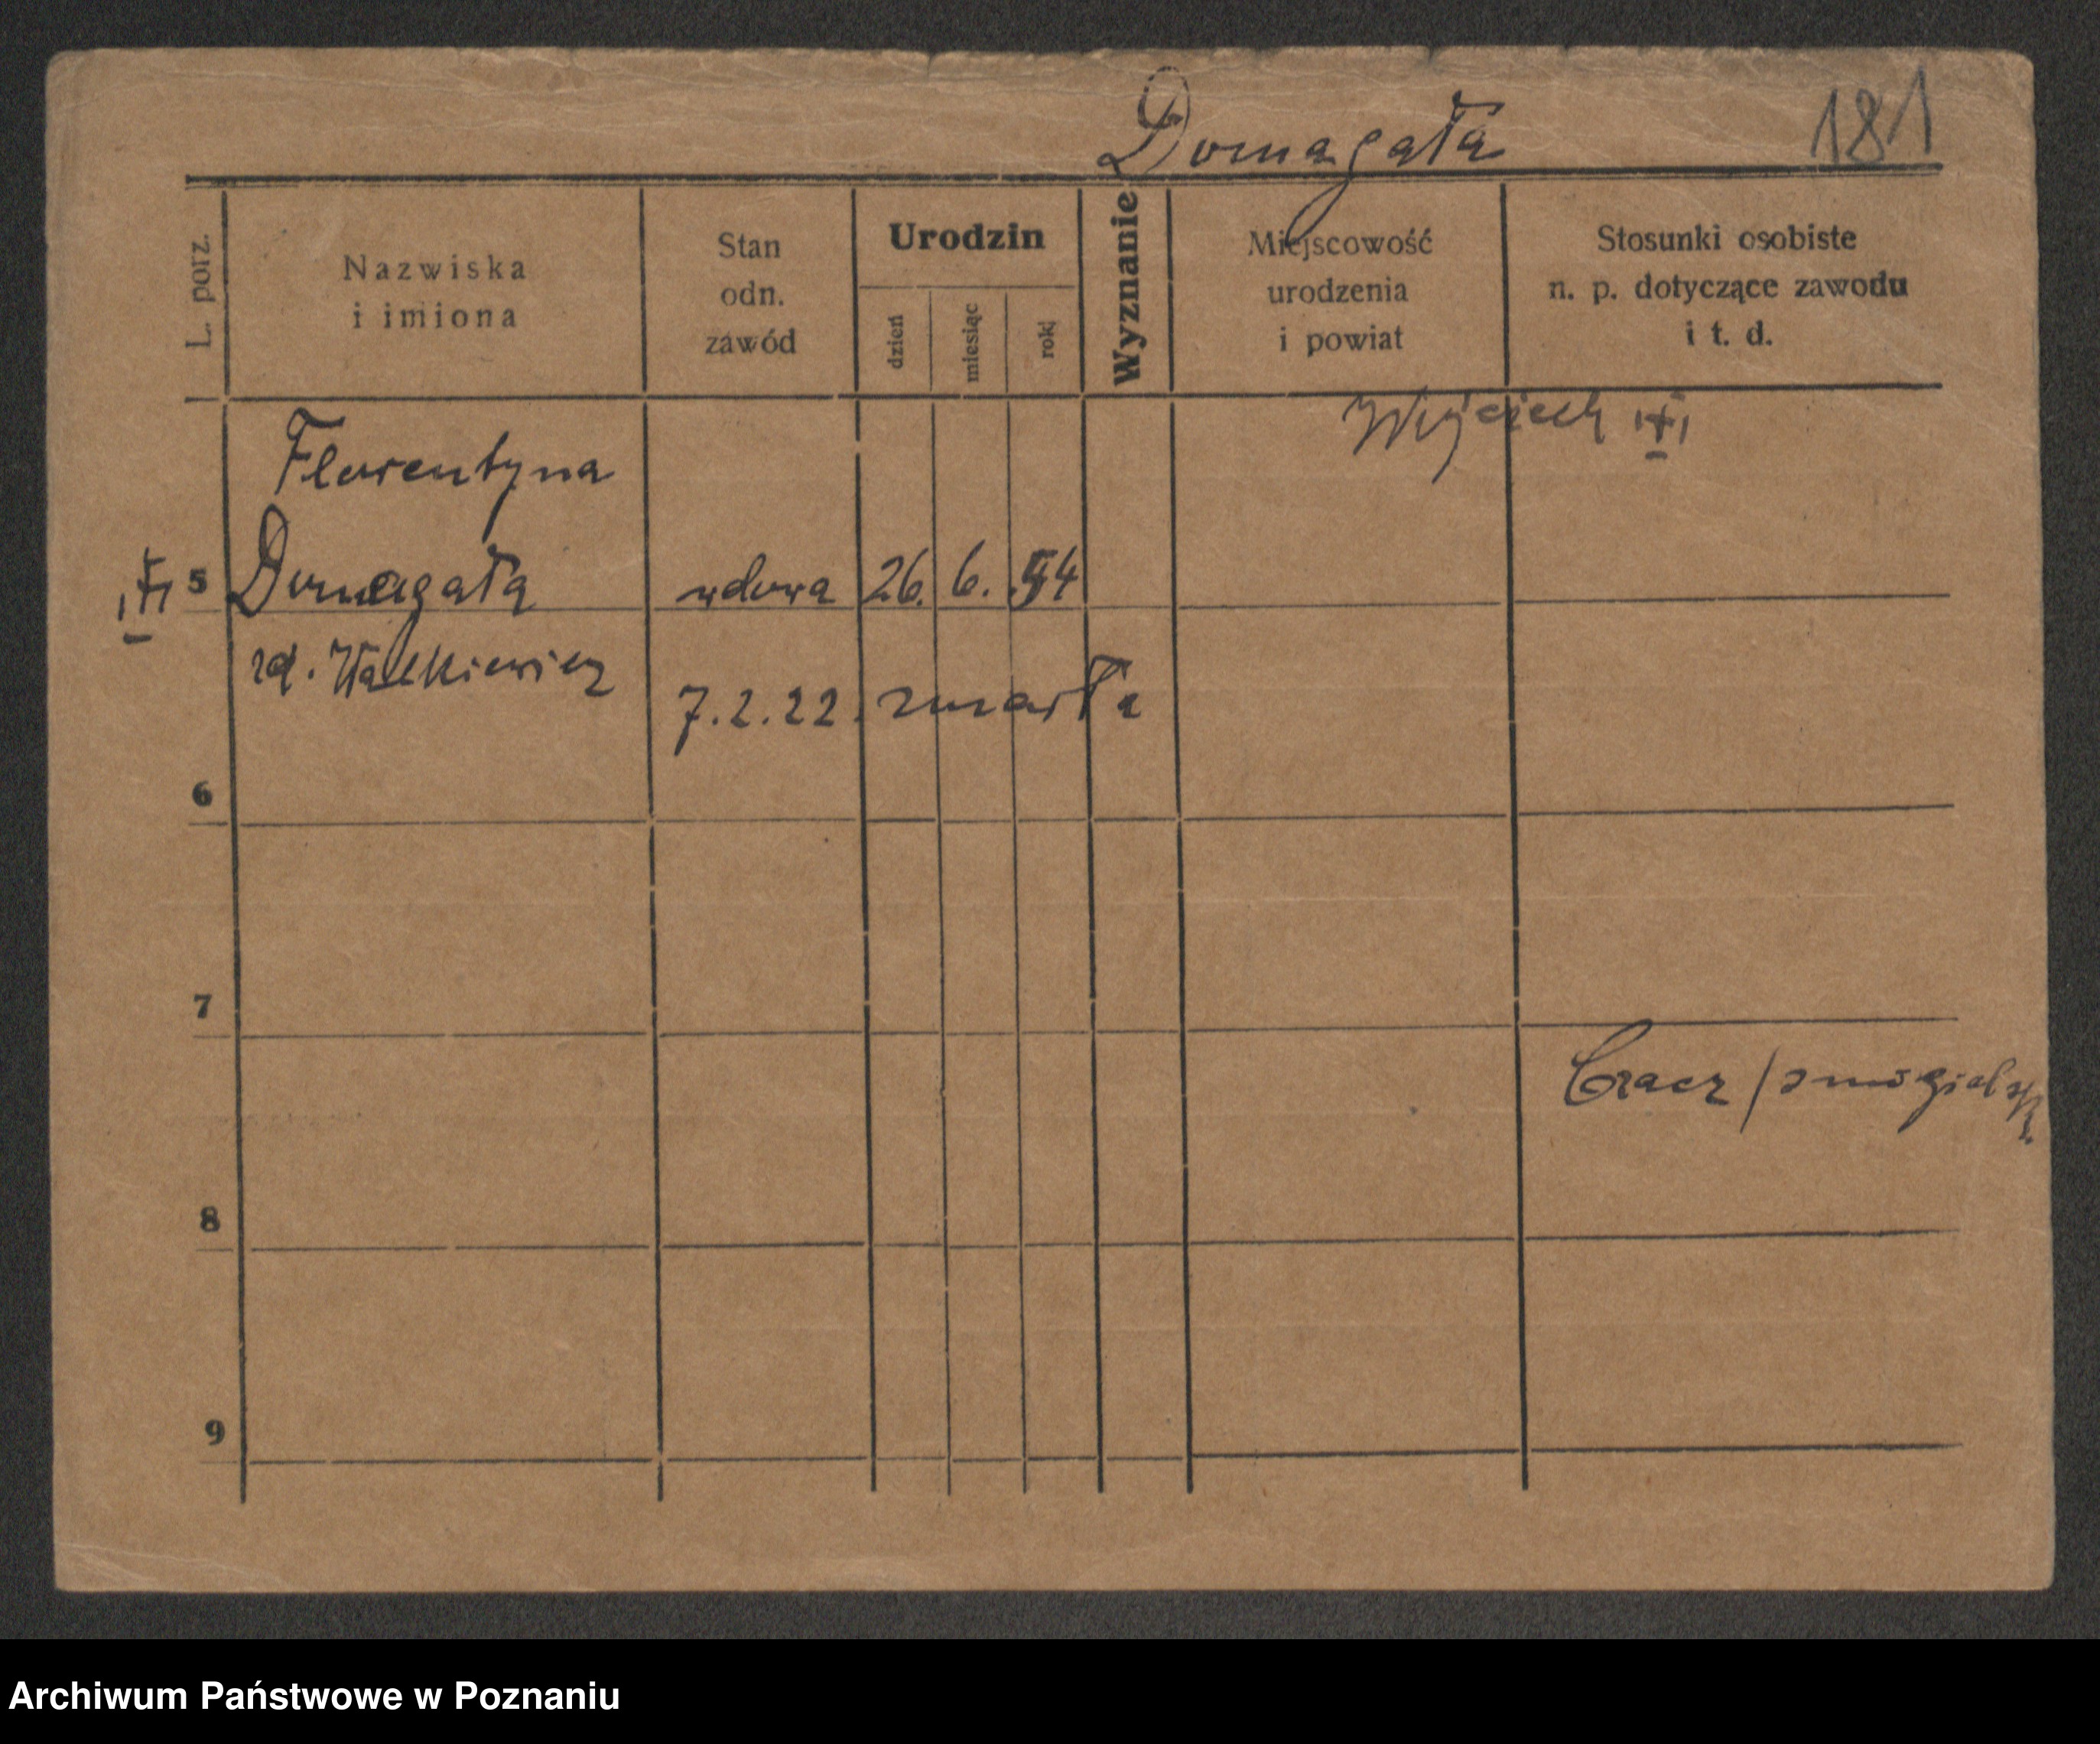 Domagała 181
L. porz.
Nazwiska
i imiona
Stan
odn.
zawód
Urodzin
dzień
miesiąc
rok
Wyznanie
Miejscowość
urodzenia
i powiat
Stosunki osobiste
n. p. dotyczące zawodu
i t. d.
Wojciech
Florentyna
5 Domagała wdowa 26. 6. 54
7.2.22. zmarła
6
7
8
9
Archiwum Państwowe w Poznaniu